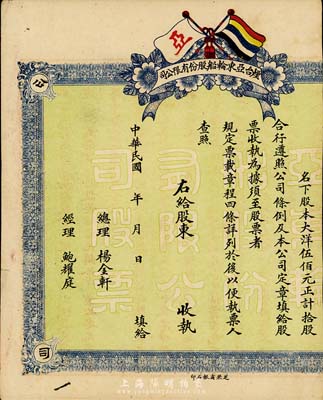 亞
煙台亞東輪船股份有限公司
公
名下股本大洋伍佰元正計拾股
合行遵照公司條例及本公司定章填給股
票收執為據須至股票者
規定票載章程四條詳列於後以便執票人
查照
右給股東 收執
中華民國 年 月 日 填給
總理 楊金軒
經理 鮑耀庭
司限公
司股票
司
上海陽明拍賣